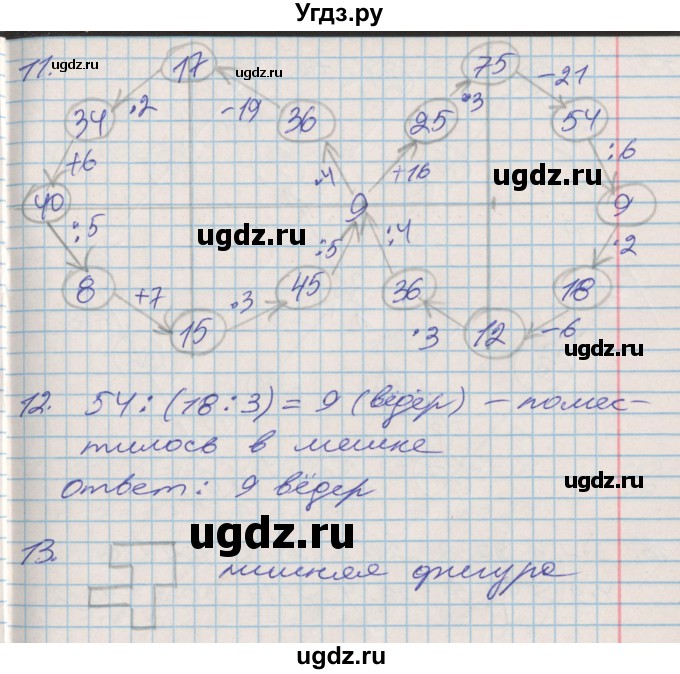 Угдз.ру
11.
ugdz.ru
17
ugdz.ru
75
-21
34
:2
-19
36
25
·3
54
+6
·4
+16
:6
ugdz.ru
40
9
9
:5
ugdz.ru
:5
:4
·2
8
+7
45
36
18
·3
15
·3
12
-6
ugdz.ru
12. 54 : (18 : 3) = 9 (вёдер) – помес-
тилось в мешке
ugdz.ru
Ответ: 9 вёдер
ugdz.ru
13.
лишняя фигура
ugdz.ru